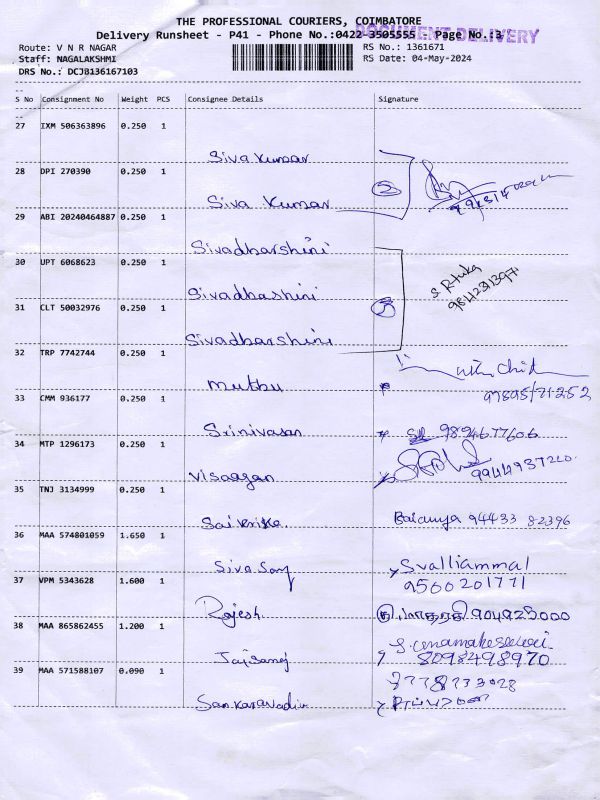 THE PROFESSIONAL COURIERS, COIMBATORE
DOCUMENT DELIVERY
Delivery Runsheet - P41 - Phone No.:0422-3505555 Page No.:3
Route: V N R NAGAR RS No.: 1361671
Staff: NAGALAKSHMI RS Date: 04-May-2024
DRS No.: DCJB136167103
S No Consignment No Weight PCS Consignee Details Signature
27 IXM 506363896 0.250 1
Siva Kumar
28 DPI 270390 0.250 1
Siva Kumar
29 ABI 20240464887 0.250 1
Sivadharshini
30 UPT 6068623 0.250 1
Sivadhashini
31 CLT 50032976 0.250 1
Sivadharshini
32 TRP 7742744 0.250 1
Muthu
33 CMM 936177 0.250 1
Srinivasan 9894677606
34 MTP 1296173 0.250 1
Visaagan
35 TNJ 3134999 0.250 1
94433 82396
36 MAA 574801059 1.650 1
Svalliammal
9560201771
37 VPM 5343628 1.600 1
Rajesh
38 MAA 865862455 1.200 1
8098498970
39 MAA 571588107 0.090 1